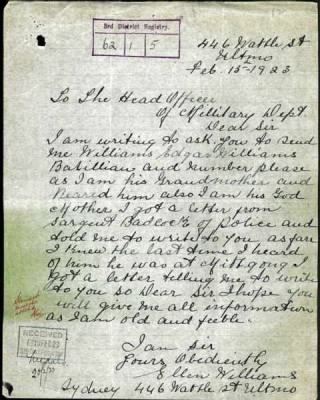 3rd District Registry.
62 1 5
446 Wattle St
Ultmo
Feb. 15-1923
To The Head Officer
Of Millitary Dept.
Dear Sir
I am writing to ask. you to send
me Williams Edgar Williams
Babillian and number please
as I am his Grandmother and
Reared him also I am his God
Mother I got a letter from
Sargent Badlock of Police and
told me to write to you as far
I knew the last time I heard
of him he was at Mittgong. I
got a letter telling me to write
to you so Dear Sir I hope you
will give me all information
as I am old and feeble.
RECEIVED
I am Sir
Yours Obediently
Ellen Williams
Sydney 446 Wattle St Ultmo